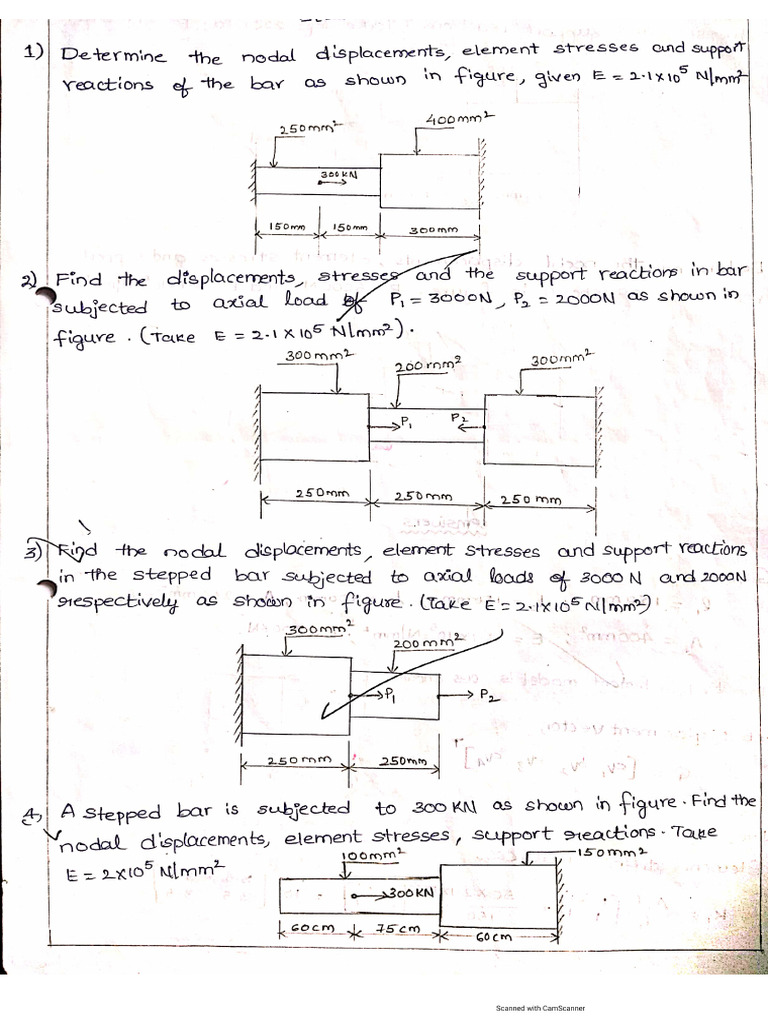 1) Determine the nodal displacements, element stresses and support
reactions of the bar as shown in figure, given E = 2.1×10⁵ N/mm²
250mm²
400mm²
300KN
150mm
150mm
300mm
2) Find the displacements, stresses and the support reactions in bar
subjected to axial load of P₁ = 3000N, P₂ = 2000N as shown in
figure. (Take E = 2.1×10⁵ N/mm²).
300mm²
200mm²
300mm²
P₁
P₂
250mm
250mm
250mm
3) Find the nodal displacements, element stresses and support reactions
in the stepped bar subjected to axial loads of 3000N and 2000N
respectively as shown in figure. (Take E = 2.1×10⁵ N/mm²)
300mm²
200mm²
P₁
P₂
250mm
250mm
4) A stepped bar is subjected to 300KN as shown in figure. Find the
nodal displacements, element stresses, support reactions. Take
E = 2×10⁵ N/mm²
100mm²
150mm²
300KN
60cm
75cm
60cm
Scanned with CamScanner